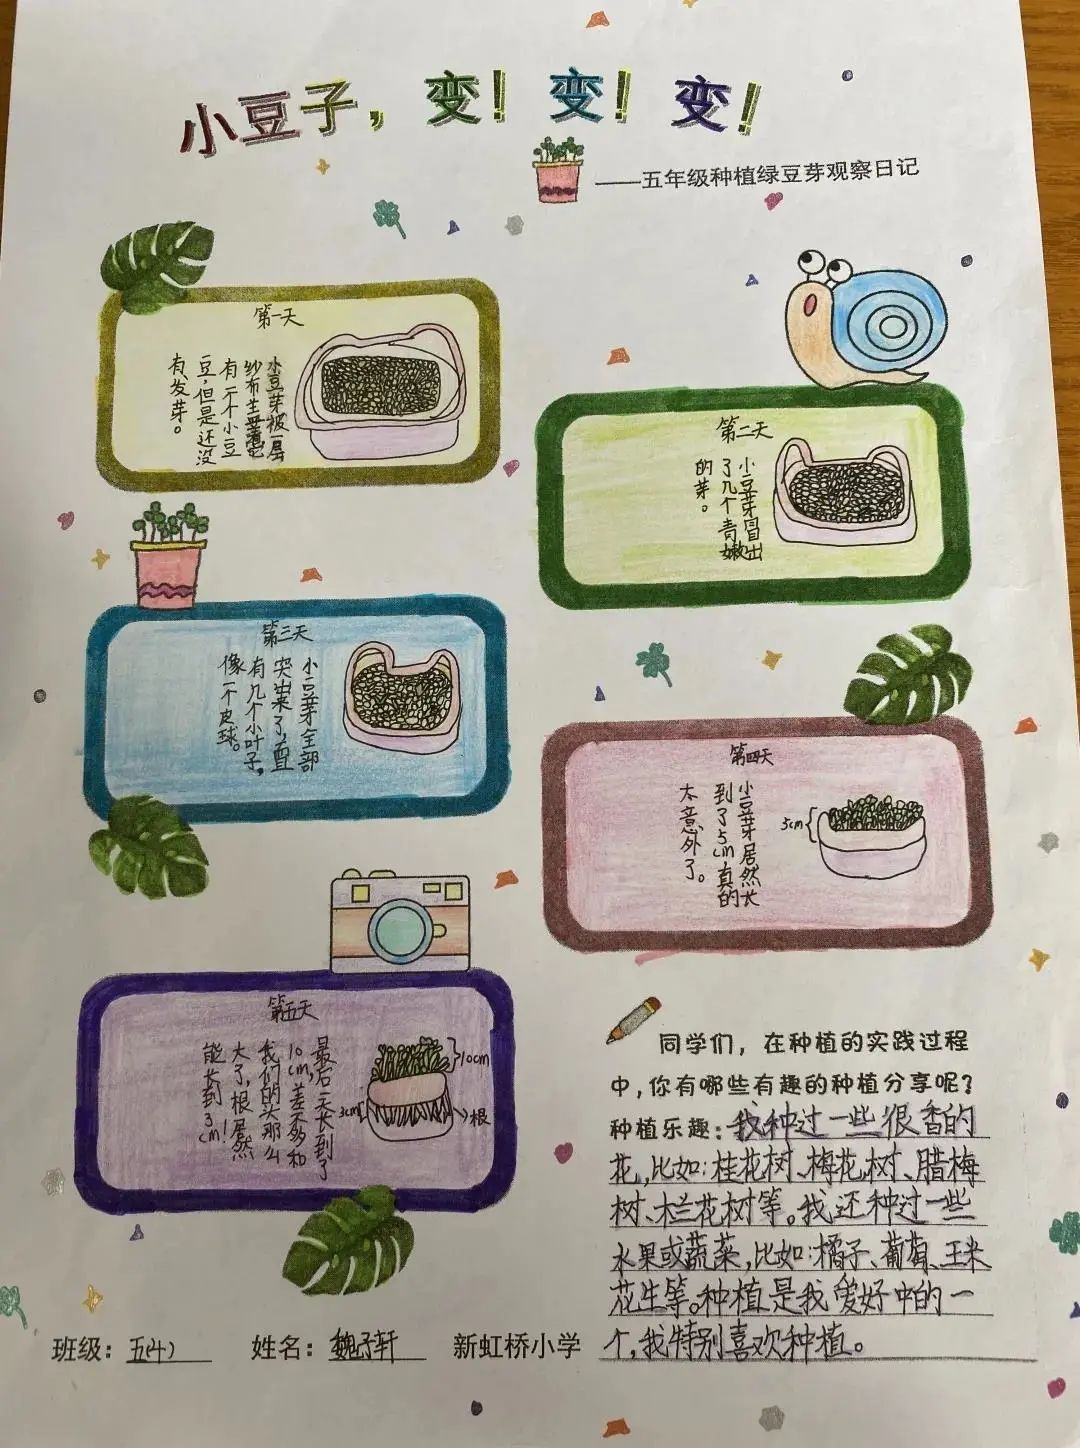 小豆子，变！变！变！
——五年级种植绿豆芽观察日记
第一天
小豆芽被一层
纱布生
有一个个小豆
豆，但是还没
有发芽。
第二天
小豆芽冒出
了几个青嫩
的芽。
第三天
小豆芽全部
突出来了，而且
有几个小叶子，
像一个皮球。
第四天
小豆芽居然长
到了5cm真的
太意外了。
5cm
第五天
最后一天长到了
10cm，差不多和
我们的头那么
大了，根居然
能长到3cm！
10cm
3cm
根
同学们，在种植的实践过程
中，你有哪些有趣的种植分享呢？
种植乐趣：我种过一些很香的
花，比如：桂花树、梅花树、腊梅
树、木兰花树等。我还种过一些
水果或蔬菜，比如：橘子、葡萄、玉米
花生等。种植是我爱好中的一
个，我特别喜欢种植。
班级：五(4) 姓名：魏子轩 新虹桥小学